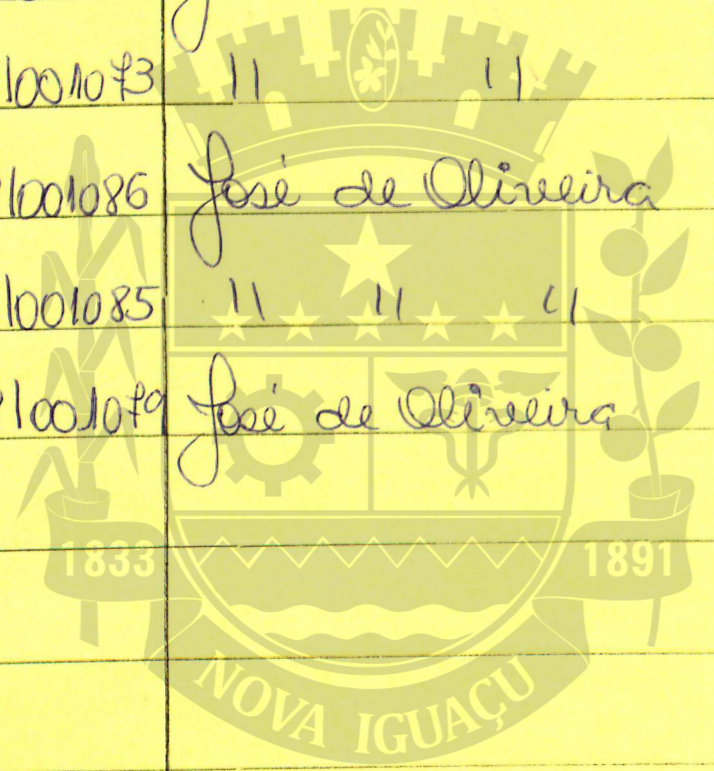 /001073 " "
/001086 José de Oliveira
/001085 " " "
/001079 José de Oliveira
1833 1891
NOVA IGUAÇU